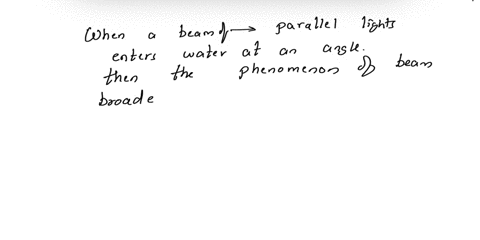 When a beam of → parallel lights
enters water at an angle.
then the phenomenon of beam
broade